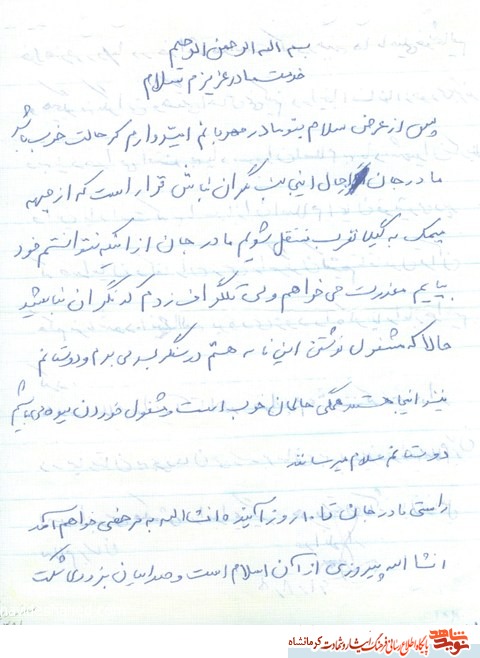 بسم الله الرحمن الرحیم
خدمت مادر عزیزم سلام
پس از عرض سلام بتو مادر مهربانم امیدوارم که حالت خوب باشد
مادر جان از حال اینجانب نگران نباش قرار است که از جبهه
به گیلانغرب منتقل شویم مادر جان از اینکه نتوانستم خود
بیایم معذرت می خواهم ولی تلگراف زدم که نگران نباشید
حالا که مشغول نوشتن این نامه هستم در سنگر بسر می برم و دوستانم
نیز اینجا هستند همگی حالمان خوب است و مشغول خوردن میوه می باشیم
دوستانم سلام میرسانند
راستی مادر جان تا ۱۰ روز آینده انشاالله به مرخصی خواهم آمد
انشا الله پیروزی از آن اسلام است و صدامیان بزودی شکست
نوید شاهد
پایگاه اطلاع رسانی فرهنگ ایثار و شهادت کرمانشاه